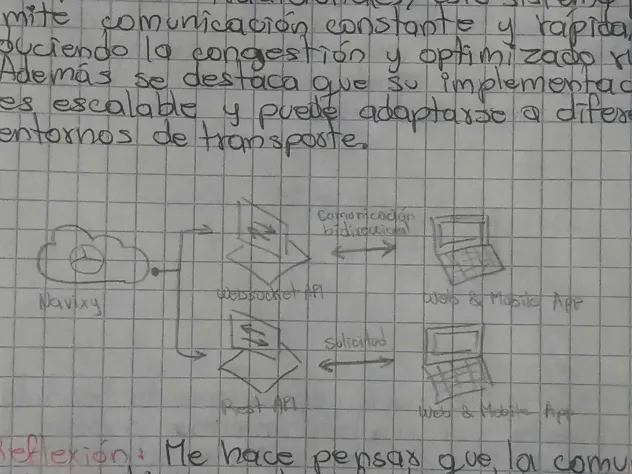 mite comunicación constante y rápida,
uciendo la congestión y optimizado r
Además se destaca que su implementac
es escalable y puede adaptarse a difere
entornos de transporte.
Comunicación
bidireccional
Navixy
Websocket API
Web & Mobile App
Solicitud
Rest API
Web & Mobile App
eflexión: Me hace pensar que la comu